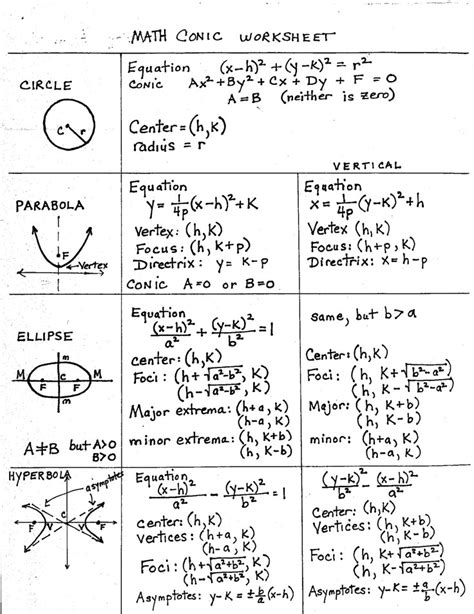 MATH CONIC WORKSHEET
CIRCLE
C
r
Equation (x-h)² + (y-k)² = r²
CONIC Ax² + By² + Cx + Dy + F = 0
A=B (neither is zero)
Center = (h,k)
radius = r
VERTICAL
PARABOLA
F
Vertex
Equation
y = 1/4p (x-h)² + K
Vertex: (h,K)
Focus: (h, K+p)
Directrix: y= K-p
CONIC A=0 or B=0
Equation
x = 1/4p (y-K)² + h
Vertex (h,K)
Focus: (h+p, K)
Directrix: x=h-p
ELLIPSE
m
M F C F M
m
A≠B but A>0
B>0
Equation
(x-h)²/a² + (y-K)²/b² = 1
center: (h,K)
Foci: (h+√a²-b², K)
(h-√a²-b², K)
Major extrema: (h+a, K)
(h-a, K)
minor extrema: (h, K+b)
(h, K-b)
same, but b>a
Center: (h,K)
Foci: (h, K+√b²-a²)
(h, K-√b²-a²)
Major: (h, K+b)
(h, K-b)
minor: (h+a, K)
(h-a, K)
HYPERBOLA
asymptotes
C
F V V F
Equation
(x-h)²/a² - (y-K)²/b² = 1
center: (h,K)
vertices: (h+a, K)
(h-a, K)
Foci: (h+√a²+b², K)
(h-√a²+b², K)
Asymptotes: y-K = ±b/a(x-h)
(y-K)²/b² - (x-h)²/a²
Center: (h,K)
Vertices: (h, K+b)
(h, K-b)
Foci: (h, K+√a²+b²)
(h, K-√a²+b²)
Asymptotes: y-K = ±b/a(x-h)